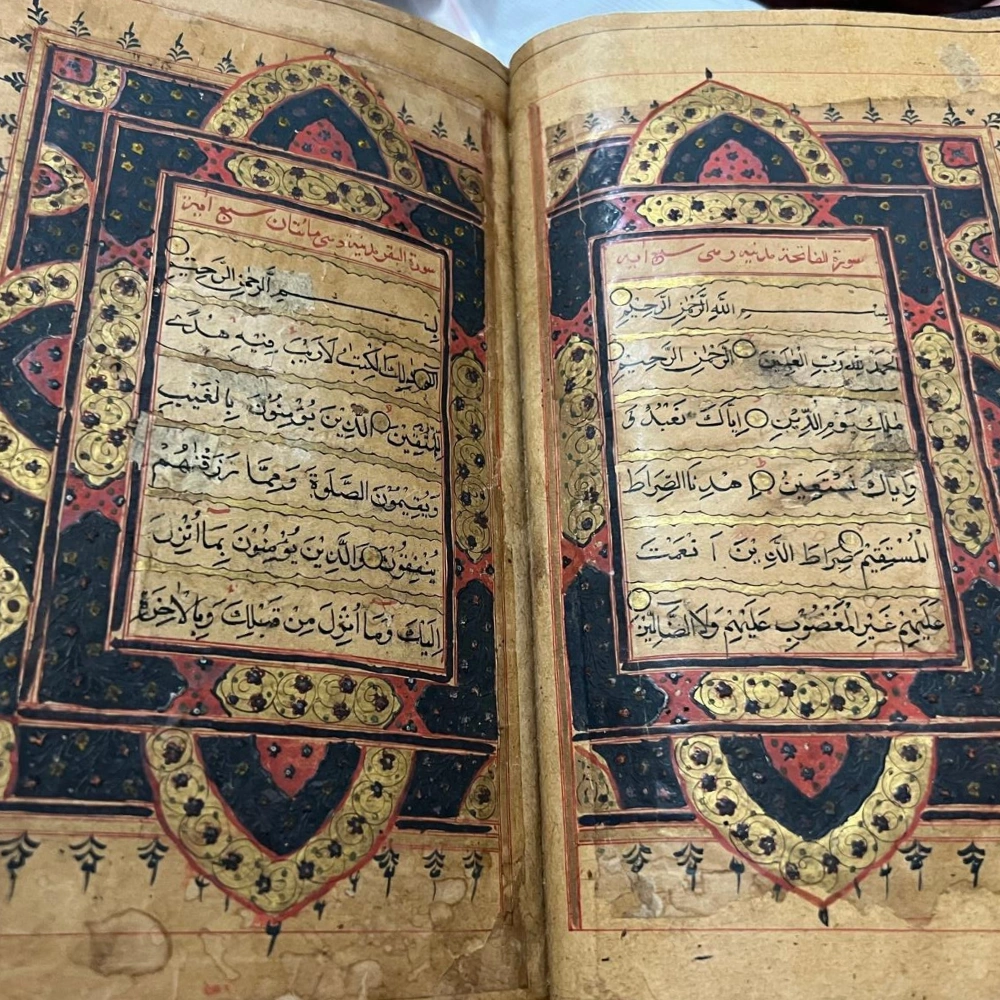 سورة الفاتحة مدنيه وهى سبع ايه
بسم الله الرحمن الرحيم
الحمد لله رب العلمين الرحمن الرحيم
ملك يوم الدين اياك نعبد و
واياك نستعين اهدنا الصراط
المستقيم صراط الذين انعمت
عليهم غير المغضوب عليهم ولا الضالين
سورة البقر مدنيه وهى مائتان ايه
بسم الله الرحمن الرحيم
الم ذلك الكتب لا ريب فيه هدى
للمتقين الذين يؤمنون بالغيب
ويقيمون الصلوة ومما رزقنهم
ينفقون والذين يؤمنون بما انزل
اليك وما انزل من قبلك وبالاخرة